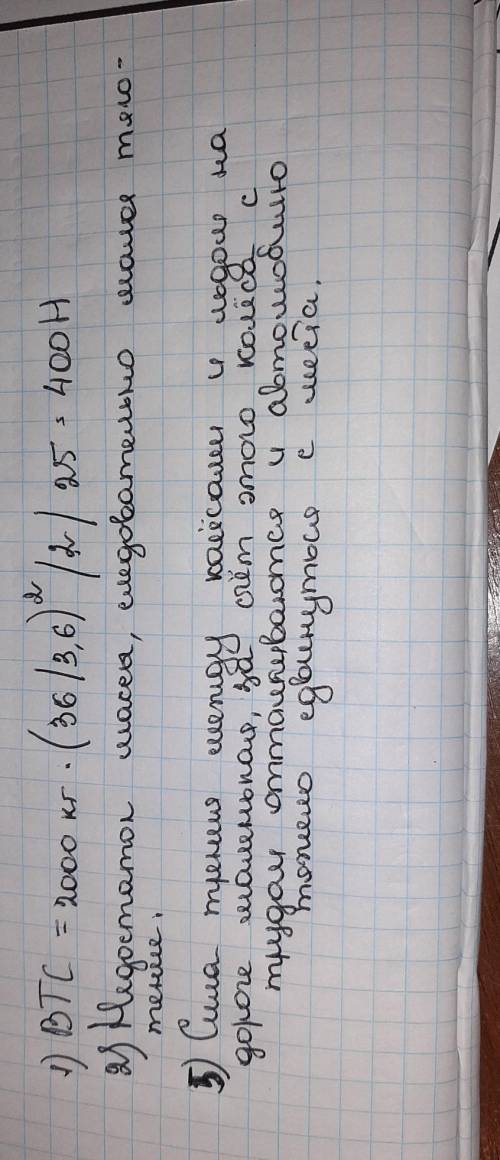 1) ВТС = 2000 кг · (36/3,6)² / 2 / 25 = 400Н
2) Недостаток массы, следовательно малое тяго-
тение.
3) Сила трения между колёсами и льдом на
дороге маленькая, за счёт этого колёса с
трудом отталкиваются и автомобилю
тяжело сдвинуться с места.